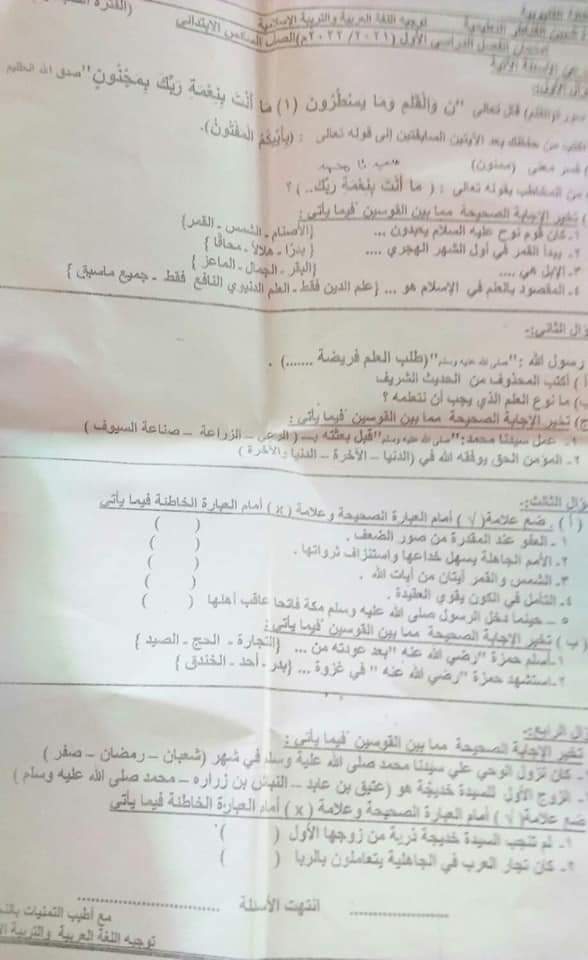 توجيه اللغة العربية والتربية الإسلامية
امتحان الفصل الدراسي الأول (٢٠٢١/ ٢٠٢٢م) الصف السادس الابتدائي
قال تعالى "ن وَالْقَلَمِ وَمَا يَسْطُرُونَ (١) مَا أَنْتَ بِنِعْمَةِ رَبِّكَ بِمَجْنُونٍ" صدق الله العظيم
اكتب من حفظك بعد الآيتين السابقتين إلى قوله تعالى : (بِأَيِّكُمُ الْمَفْتُونُ).
فسر معنى (ممنون)
من المخاطب بقوله تعالى : ( مَا أَنْتَ بِنِعْمَةِ رَبِّكَ.. ) ؟
تخير الإجابة الصحيحة مما بين القوسين فيما يأتي :
١- كان قوم نوح عليه السلام يعبدون ... {الأصنام - الشمس - القمر}
٢- يبدأ القمر في أول الشهر الهجري .... { بدرًا - هلالاً - محاقًا }
٣- الإبل هي .... {البقر - الجمال - الماعز }
٤- المقصود بالعلم في الإسلام هو ... {علم الدين فقط - العلم الدنيوي النافع فقط - جميع ماسبق }
السؤال الثاني:-
رسول الله :"صلى الله عليه وسلم" (طلب العلم فريضة .......) .
أ ) أكتب المحذوف من الحديث الشريف
ب) ما نوع العلم الذي يجب أن نتعلمه ؟
ج) تخير الإجابة الصحيحة مما بين القوسين فيما يأتي :
١- عمل سيدنا محمد:"صلى الله عليه وسلم" قبل بعثته بـ... ( الرعي – الزراعة – صناعة السيوف )
٢- المؤمن الحق يوفقه الله في (الدنيا – الآخرة – الدنيا والآخرة )
السؤال الثالث:-
( أ ) . ضع علامة (√ ) أمام العبارة الصحيحة وعلامة ( x ) أمام العبارة الخاطئة فيما يأتي
١ - العفو عند المقدرة من صور الضعف . ( )
٢- الأمم الجاهلة يسهل خداعها واستنزاف ثرواتها . ( )
٣- الشمس والقمر آيتان من آيات الله . ( )
٤- التأمل في الكون يقوي العقيدة . ( )
٥ – حينما دخل الرسول صلى الله عليه وسلم مكة فاتحا عاقب أهلها ( )
( ب ) تخير الإجابة الصحيحة مما بين القوسين فيما يأتي :
١- أسلم حمزة "رضي الله عنه" بعد عودته من ... {التجارة - الحج - الصيد }
٢- استشهد حمزة "رضي الله عنه " في غزوة ... {بدر - أحد - الخندق }
السؤال الرابع:-
تخير الإجابة الصحيحة مما بين القوسين فيما يأتي :
- كان نزول الوحي علي سيدنا محمد صلى الله علية وسلم في شهر (شعبان – رمضان – صفر )
- الزوج الأول للسيدة خديجة هو (عتيق بن عابد – النباش بن زراره – محمد صلى الله عليه وسلم )
ضع علامة (√ ) أمام العبارة الصحيحة وعلامة ( x ) أمام العبارة الخاطئة فيما يأتي
١- لم تنجب السيدة خديجة ذرية من زوجها الأول ( )
٢- كان تجار العرب في الجاهلية يتعاملون بالربا ( )
.................. انتهت الأسئلة ..................
مع أطيب التمنيات
توجيه اللغة العربية والتربية